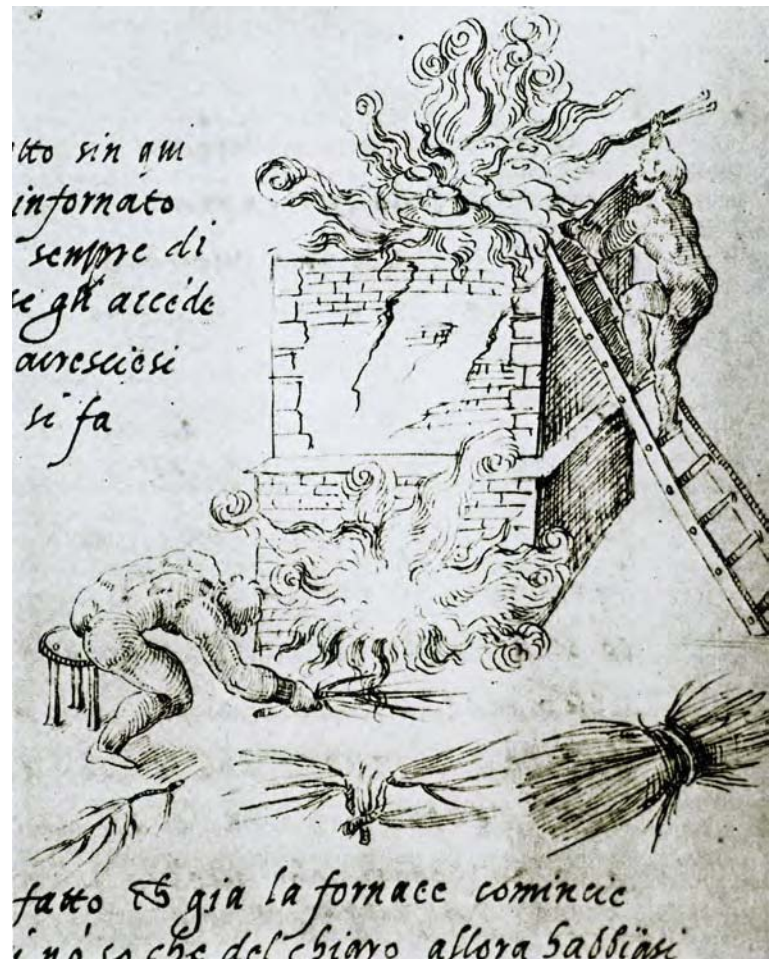 tto sin qui
infornato
sempre di
se gli accède
acresciesi
si fa
fatto & gia la fornace comincie
i nō so che del chiaro allora habbiasi